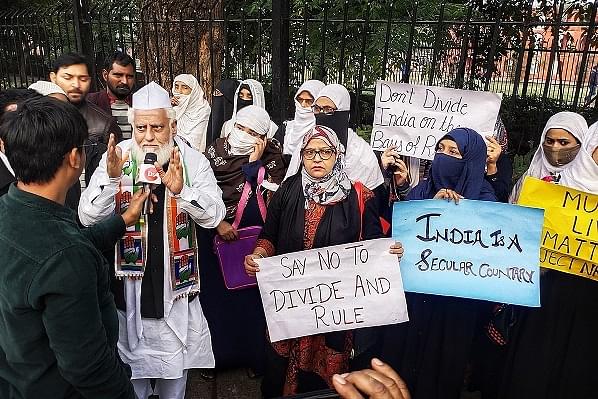 Don't Divide
India on the
Bays of R
SAY NO TO
DIVIDE AND
RULE
INDIA IS A
SECULAR COUNTARY
MU
LIV
MATT
OJECT N